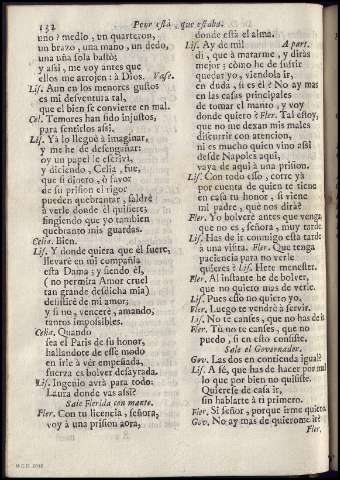 132 Peor está, que estaba.
uno? medio, un quarteron,
un brazo, una mano, un dedo,
una uña sola bastò;
y assi, me voy antes que
ellos me arrojen: à Dios. Vase.
Lis. Aun en los menores gustos
es mi desventura tal,
que el bien se convierte en mal.
Cel. Temores han sido injustos,
para sentirlos assi.
Lis. Yà lo lleguè à imaginar,
y me he de desengañar:
oy un papel le escrivì,
y diciendo, Celia, fue,
que si dinero, ò favor
de su prision el rigor
pueden quebrantar, saldrè
à verle donde èl quisiere;
fingiendo que yo tambien
quebranto mis guardas.
Celia. Bien.
Lis. Y donde quiera que èl fuere,
llevarè en mi compañia
esta Dama; y siendo èl,
( no permita Amor cruel
tan grande desdicha mia)
desistirè de mi amor;
y si no, vencerè, amando,
tantos impossibles.
Celia. Quando
sea el Paris de su honor,
hallandote de esse modo
en irle à vèr empeñada,
fuerza es bolver desayrada.
Lis. Ingenio avrà para todo:
Laura donde vàs assi?
Sale Flerida con manto.
Fler. Con tu licencia, señora,
voy à una prision aora,
donde està el alma.
Lis. Ay de mi! A part.
di, que à matarme, y diràs
mejor; còmo he de sufrir
quedar yo, viendola ir,
en duda, si es èl? No ay mas
en las casas principales
de tomar el manto, y voy
donde quiero? Fler. Tal estoy,
que no me dexan mis males
discurrir con atencion,
ni es mucho quien vino assi
desde Napoles aqui,
vaya de aqui à una prision.
Lis. Con todo esso, corre yà
por cuenta de quien te tiene
en casa tu honor, si viene
mi padre, què nos dirà?
Fler. Yo bolverè antes que venga
que no es, señora, muy tarde
Lis. Has de ir conmigo esta tarde
à una visita. Fler. Que tenga
paciencia para no verle
quieres? Lis. Hete menester.
Fler. Al instante he de bolver,
que no quiero mas de verle.
Lis. Pues esso no quiero yo.
Fler. Luego te vendrè à servir.
Lis. No te canses, que no has de ir
Fler. Tù no te canses, que no
puedo, si en esso consiste.
Sale el Governador.
Gov. Las dos en contienda igual?
Lis. A fé, que has de hacer por mal
lo que por bien no quisiste.
Quierese de casa ir,
sin hablarte à ti primero.
Fler. Si señor, porque irme quiero
Gov. No ay mas de quierome ir?
Fler.